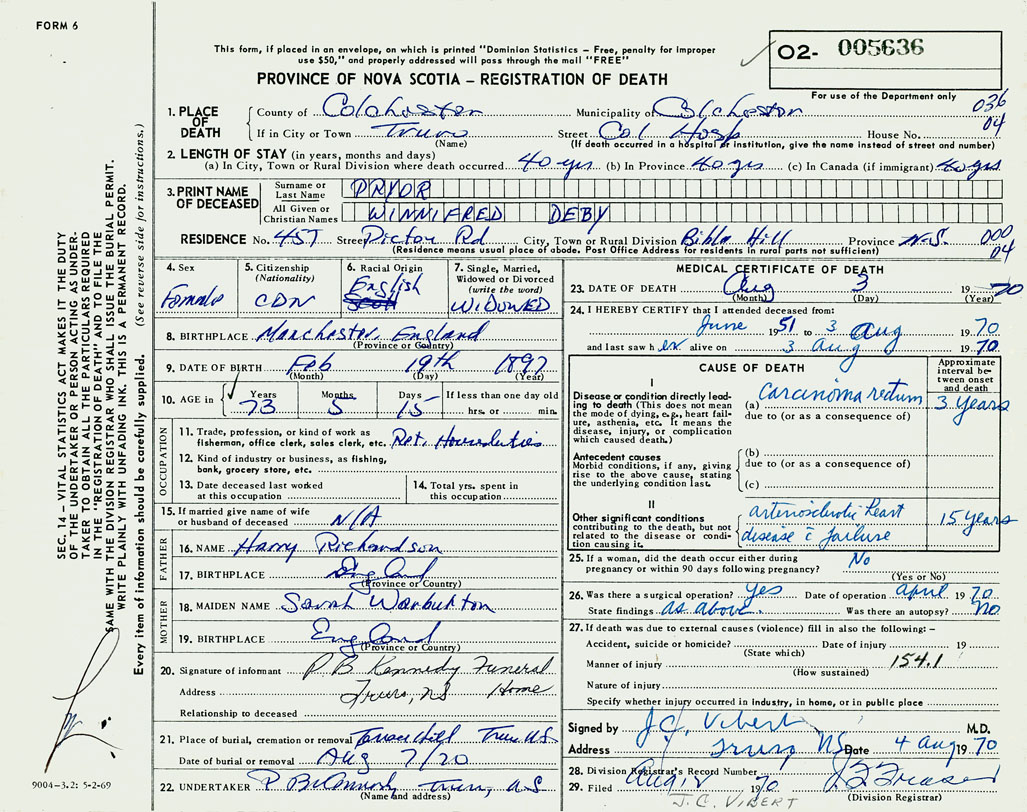 FORM 6
This form, if placed in an envelope, on which is printed "Dominion Statistics – Free, penalty for improper
use $50," and properly addressed will pass through the mail "FREE"
02- 005636
For use of the Department only
PROVINCE OF NOVA SCOTIA – REGISTRATION OF DEATH
1. PLACE OF DEATH
County of Colchester Municipality of Colchester 036
If in City or Town Truro Street Col Hosp House No. 04
(Name) (If death occurred in a hospital or institution, give the name instead of street and number)
2. LENGTH OF STAY (in years, months and days)
(a) In City, Town or Rural Division where death occurred 40 yrs (b) In Province 40 yrs (c) In Canada (if immigrant) 40 yrs
3. PRINT NAME OF DECEASED
Surname or Last Name PRYOR
All Given or Christian Names WINNIFRED DEBY
RESIDENCE No. 457 Street Pictou Rd City, Town or Rural Division Bible Hill Province N.S. 000
04
(Residence means usual place of abode. Post Office Address for residents in rural parts not sufficient)
4. Sex Female
5. Citizenship (Nationality) CDN
6. Racial Origin English Scott
7. Single, Married, Widowed or Divorced (write the word) WIDOWED
8. BIRTHPLACE Manchester, England
(Province or Country)
9. DATE OF BIRTH Feb 19th 1897
(Month) (Day) (Year)
10. AGE in Years 73 Months 5 Days 15 If less than one day old hrs. or min.
OCCUPATION
11. Trade, profession, or kind of work as
fisherman, office clerk, sales clerk, etc. Ret. Housduties
12. Kind of industry or business, as fishing,
bank, grocery store, etc.
13. Date deceased last worked
at this occupation
14. Total yrs. spent in
this occupation
15. If married give name of wife
or husband of deceased N/A
FATHER
16. NAME Harry Richardson
17. BIRTHPLACE England
(Province or Country)
MOTHER
18. MAIDEN NAME Sarah Warburton
19. BIRTHPLACE England
(Province or Country)
20. Signature of informant P B Kennedy Funeral
Address Truro, NS Home
Relationship to deceased
21. Place of burial, cremation or removal Terrace Hill Truro N.S
Date of burial or removal Aug 7/70
22. UNDERTAKER P B Kennedy Truro, N.S
(Name and address)
MEDICAL CERTIFICATE OF DEATH
23. DATE OF DEATH Aug 3 19 70
(Month) (Day) (Year)
24. I HEREBY CERTIFY that I attended deceased from:
June 19 51 to 3 Aug 19 70
and last saw h er alive on 3 Aug 19 70
CAUSE OF DEATH
Approximate interval between onset and death
I
Disease or condition directly leading to death (This does not mean the mode of dying, e.g., heart failure, asthenia, etc. It means the disease, injury, or complication which caused death.)
(a) Carcinoma rectum 3 Years
due to (or as a consequence of)
Antecedent causes
Morbid conditions, if any, giving rise to the above cause, stating the underlying condition last.
(b)
due to (or as a consequence of)
(c)
II
Other significant conditions contributing to the death, but not related to the disease or condition causing it.
arteriosclerotic heart
disease c̄ failure 15 years
25. If a woman, did the death occur either during
pregnancy or within 90 days following pregnancy? No
(Yes or No)
26. Was there a surgical operation? Yes Date of operation April 19 70
State findings as above. Was there an autopsy? No
27. If death was due to external causes (violence) fill in also the following: –
Accident, suicide or homicide? Date of injury 19
(State which)
Manner of injury 154.1
(How sustained)
Nature of injury
Specify whether injury occurred in industry, in home, or in public place
Signed by J.C. Vibert M.D.
Address Truro NS Date 4 Aug 19 70
28. Division Registrar's Record Number
29. Filed Aug 8 70
(Division Registrar)
J.C. VIBERT
SEC. 14 – VITAL STATISTICS ACT MAKES IT THE DUTY
OF THE UNDERTAKER OR PERSON ACTING AS UNDER-
TAKER TO OBTAIN ALL THE PARTICULARS REQUIRED
IN THE "REGISTRATION OF DEATH" AND TO FILE THE
SAME WITH THE DIVISION REGISTRAR WHO SHALL ISSUE THE BURIAL PERMIT.
WRITE PLAINLY WITH UNFADING INK. THIS IS A PERMANENT RECORD.
Every item of information should be carefully supplied. (See reverse side for instructions.)
9004–3.2: 5-2-69